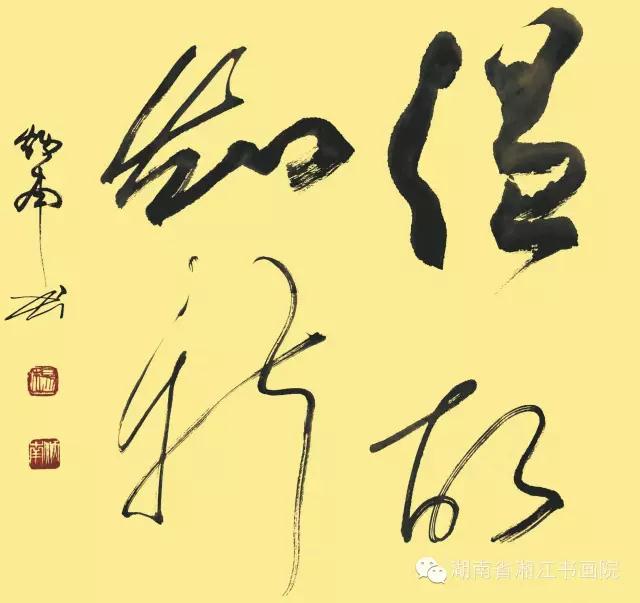 温故
知新
炳南书
湖南省湘江书画院